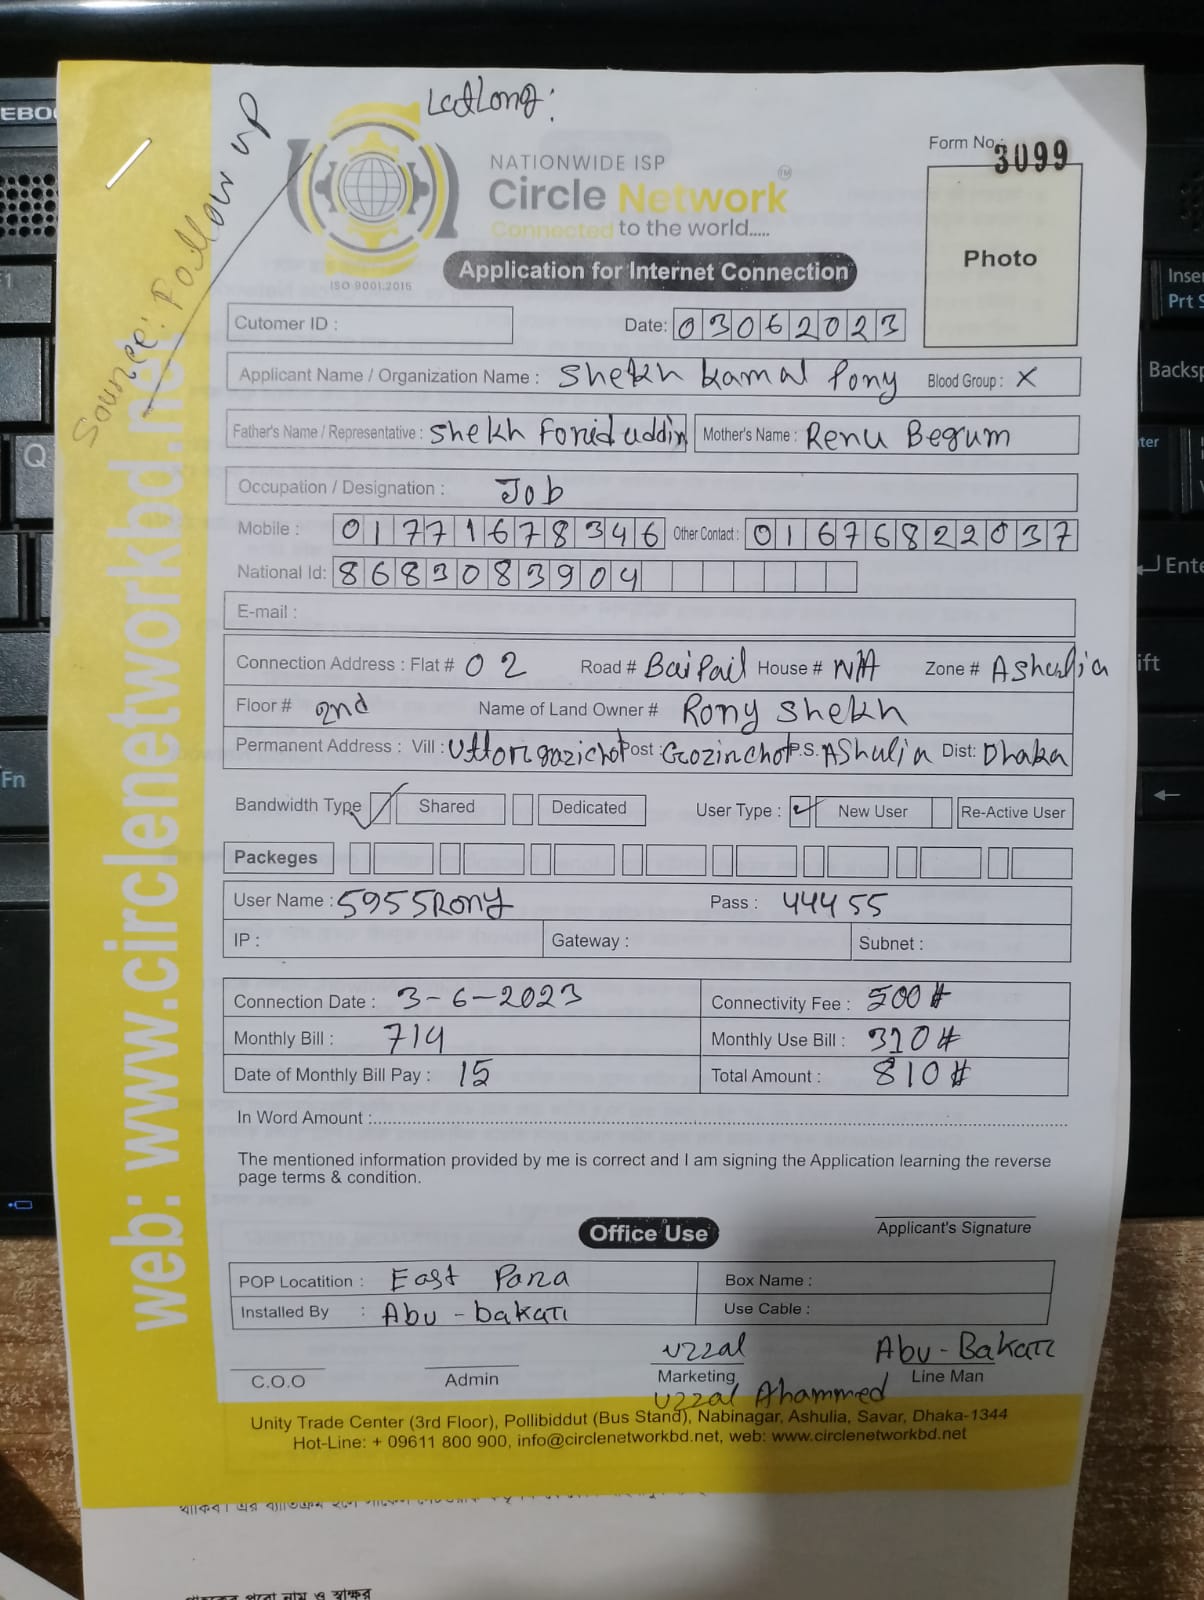 LatLong:
Source: Follow up
Form No: 3099
NATIONWIDE ISP
Circle Network TM
Connected to the world.....
ISO 9001:2015
Application for Internet Connection
Photo
Cutomer ID :
Date: 03062023
Applicant Name / Organization Name : Shekh kamal Pony Blood Group : X
Father's Name / Representative : Shekh Forid uddin Mother's Name : Renu Begum
Occupation / Designation : Job
Mobile : 01771678346 Other Contact : 01676822037
National Id: 8683083904
E-mail :
Connection Address : Flat # 02 Road # Baipail House # N/A Zone # Ashulia
Floor # 2nd Name of Land Owner # Rony Shekh
Permanent Address : Vill : Uttorigazichot Post : Gozirchot P.S. AShulia Dist: Dhaka
Bandwidth Type Shared Dedicated User Type : New User Re-Active User
Packeges
User Name : 5955Rony Pass : 44455
IP : Gateway : Subnet :
Connection Date : 3-6-2023 Connectivity Fee : 500#
Monthly Bill : 714 Monthly Use Bill : 310#
Date of Monthly Bill Pay : 15 Total Amount : 810#
In Word Amount :
The mentioned information provided by me is correct and I am signing the Application learning the reverse
page terms & condition.
Applicant's Signature
Office Use
POP Locatition : East Para Box Name :
Installed By : Abu-bakar Use Cable :
Uzzal Abu-Bakar
C.O.O Admin Marketing Line Man
Uzzal Ahammed
Unity Trade Center (3rd Floor), Pollibiddut (Bus Stand), Nabinagar, Ashulia, Savar, Dhaka-1344
Hot-Line: + 09611 800 900, info@circlenetworkbd.net, web: www.circlenetworkbd.net
web: www.circlenetworkbd.net
EBO
F1
Q
Fn
Inse
Prt S
Backsp
Ente
ift